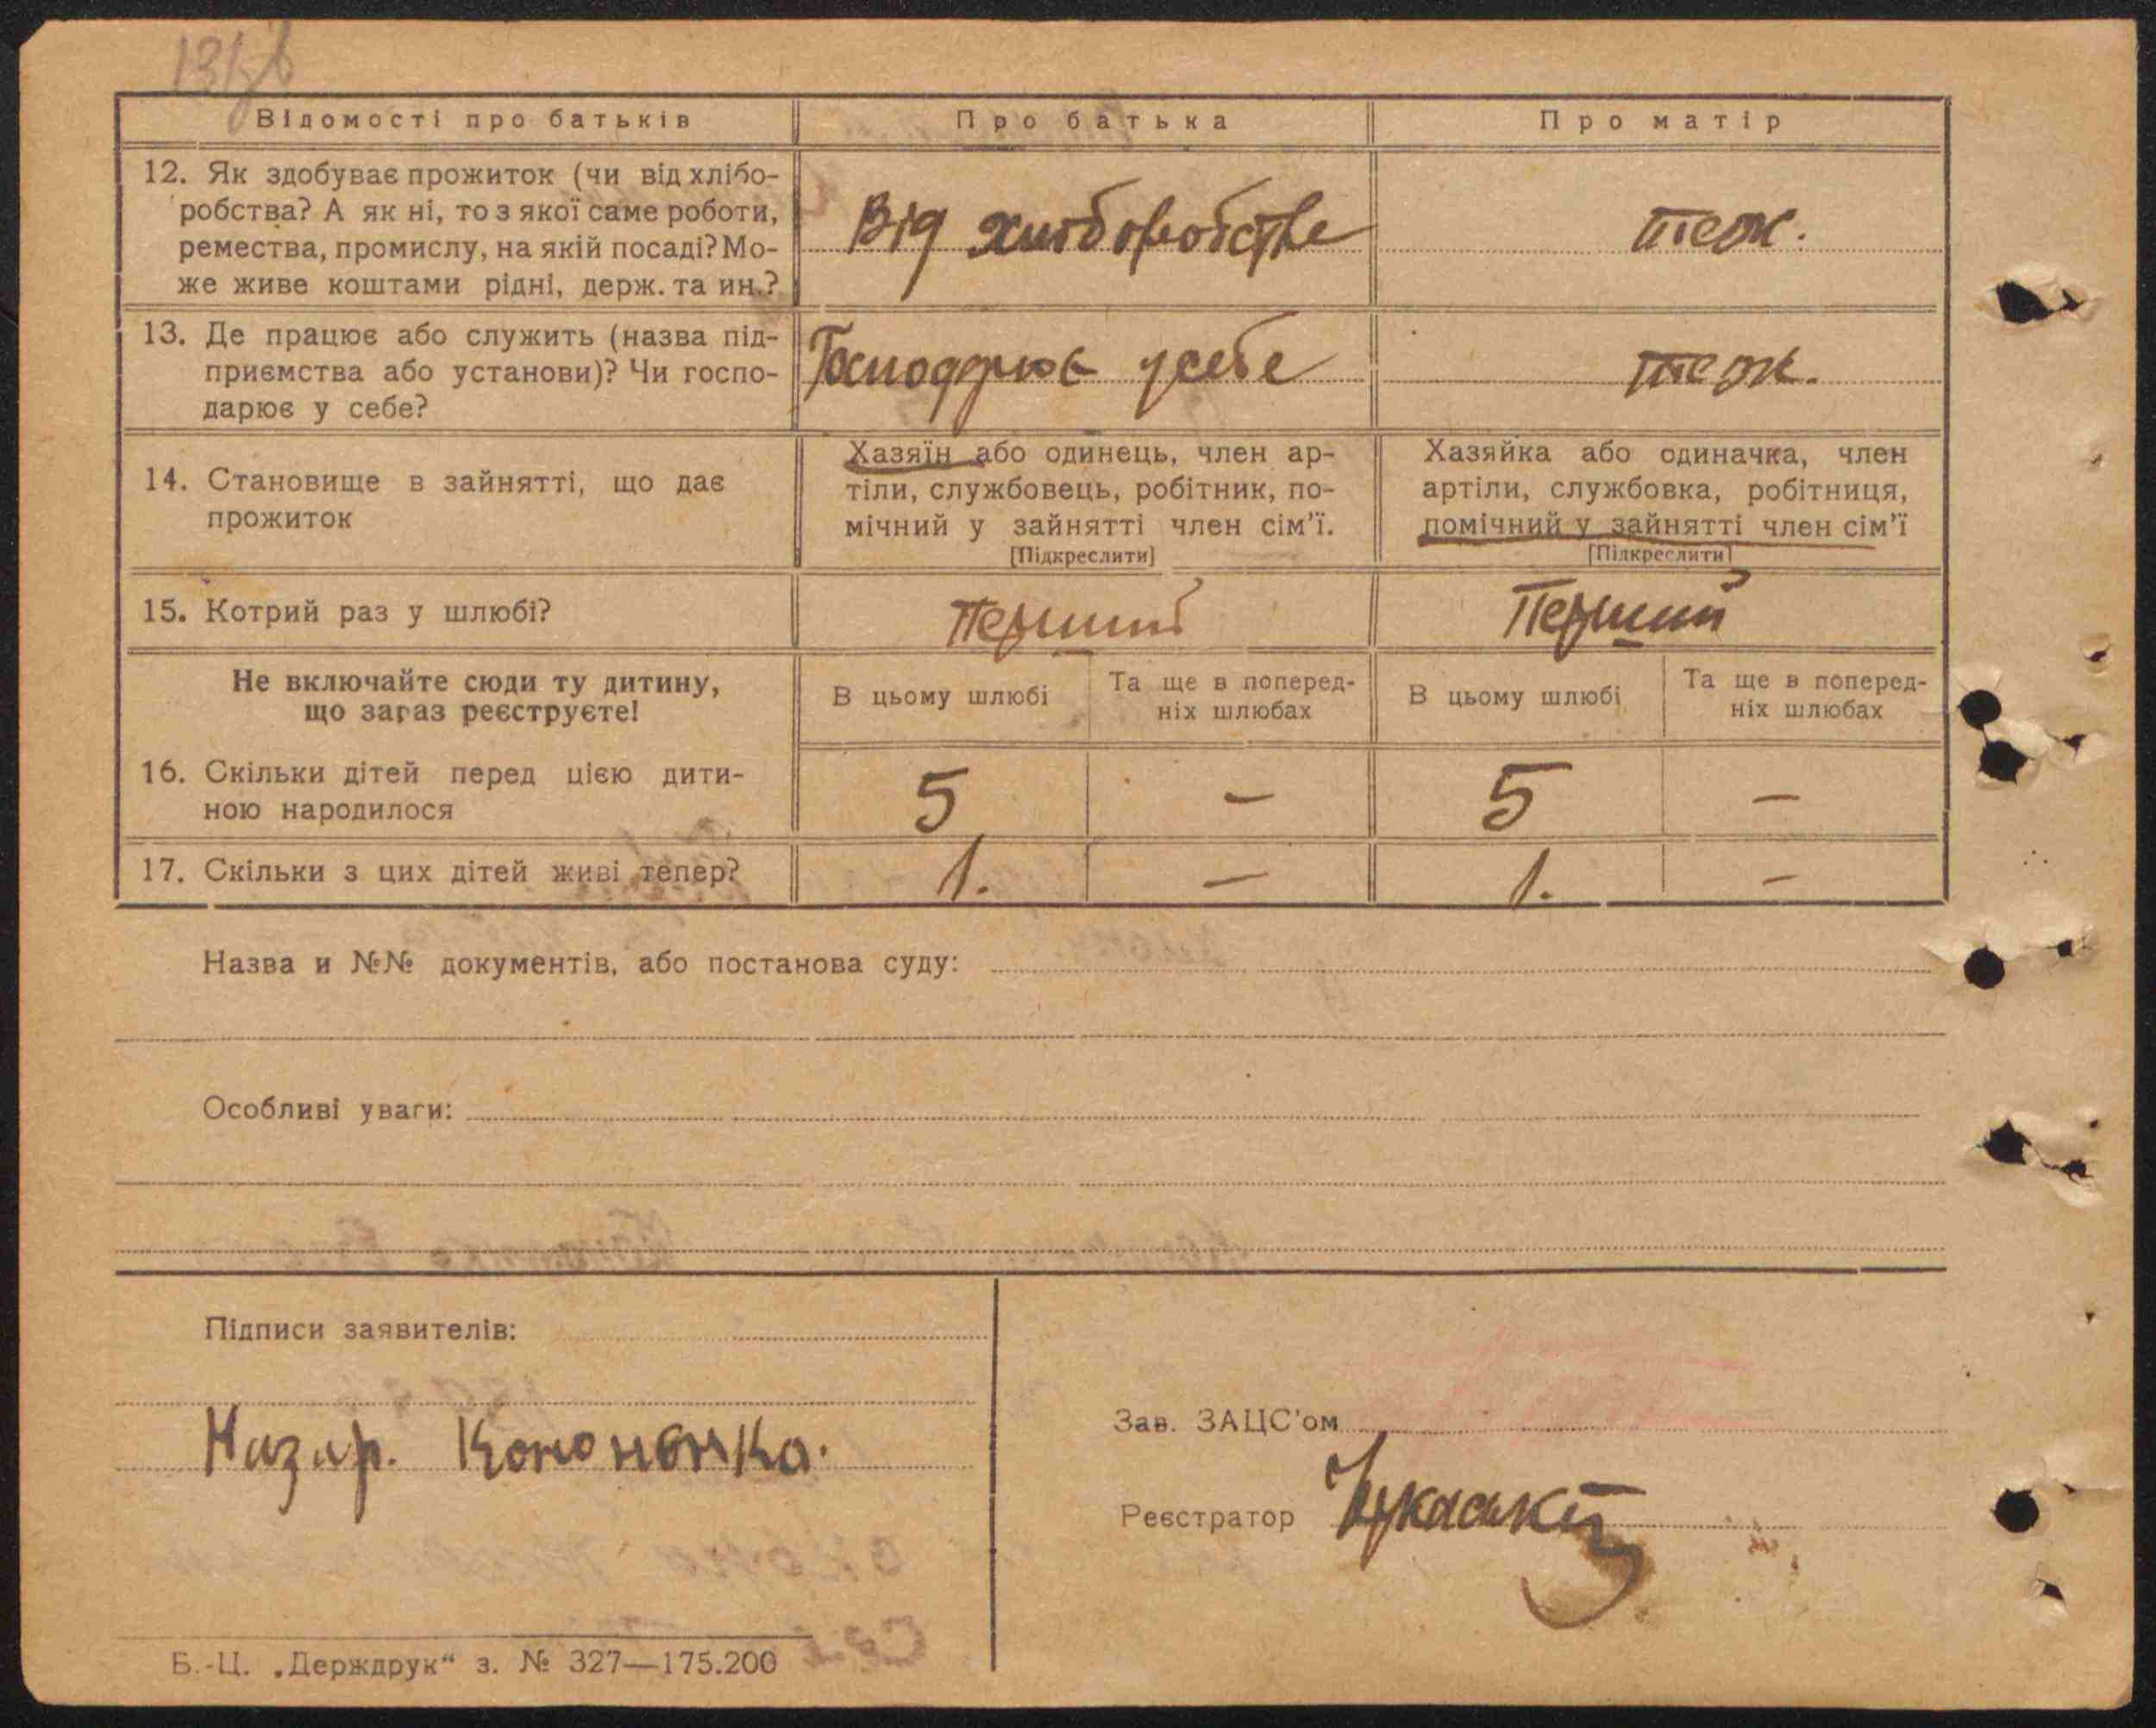 Відомості про батьків Про батька Про матір
12. Як здобуває прожиток (чи від хлібо-
робства? А як ні, то з якої саме роботи,
ремества, промислу, на якій посаді? Мо-
же живе коштами рідні, держ. та ин.?
Від хліборобства теж.
13. Де працює або служить (назва під-
приємства або установи)? Чи госпо-
дарює у себе?
Господрює усебе теж.
14. Становище в зайнятті, що дає
прожиток
Хазяїн або одинець, член ар-
тіли, службовець, робітник, по-
мічний у зайнятті член сім'ї.
[Підкреслити]
Хазяйка або одиначка, член
артіли, службовка, робітниця,
помічний у зайнятті член сім'ї
[Підкреслити]
15. Котрий раз у шлюбі? Перший Перший
Не включайте сюди ту дитину,
що зараз реєструєте!
В цьому шлюбі
Та ще в поперед-
ніх шлюбах
В цьому шлюбі
Та ще в поперед-
ніх шлюбах
16. Скільки дітей перед цією дити-
ною народилося
5 – 5 –
17. Скільки з цих дітей живі тепер? 1. – 1. –
Назва и №№ документів, або постанова суду:
Особливі уваги:
Підписи заявителів:
Назар. Кононенка.
Зав. ЗАЦС'ом
Реєстратор
Б.-Ц. „Держдрук“ з. № 327—175.200